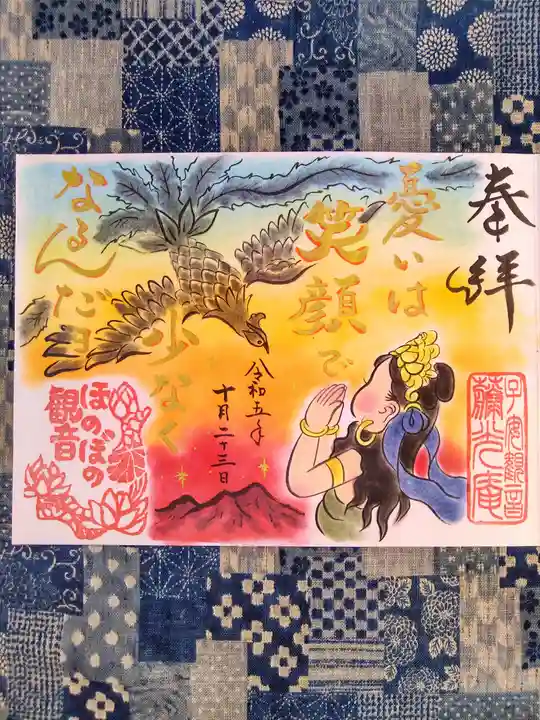 奉拝
憂いは
笑顔で
少なく
なるんだヨ
令和五年
十月二十三日
子安観音
藥光庵
ほのぼの
観音